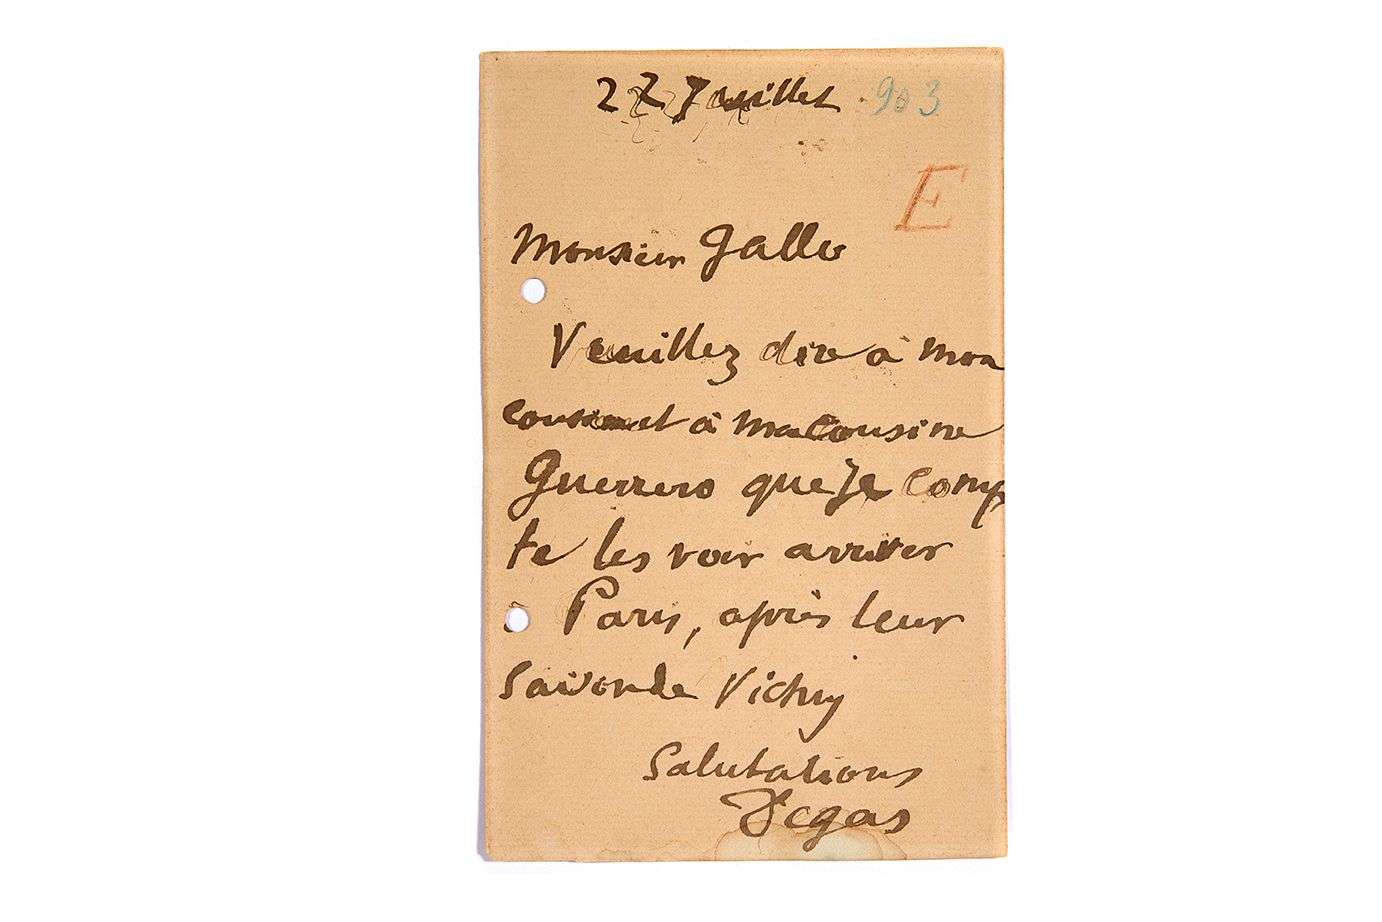 22 Juillet .903
E
Monsieur Gallo
Veuillez dire à mon
cousin et à ma cousine
Guerrero que je comp
te les voir arriver
à Paris, après leur
saison de Vichy
Salutations
Degas